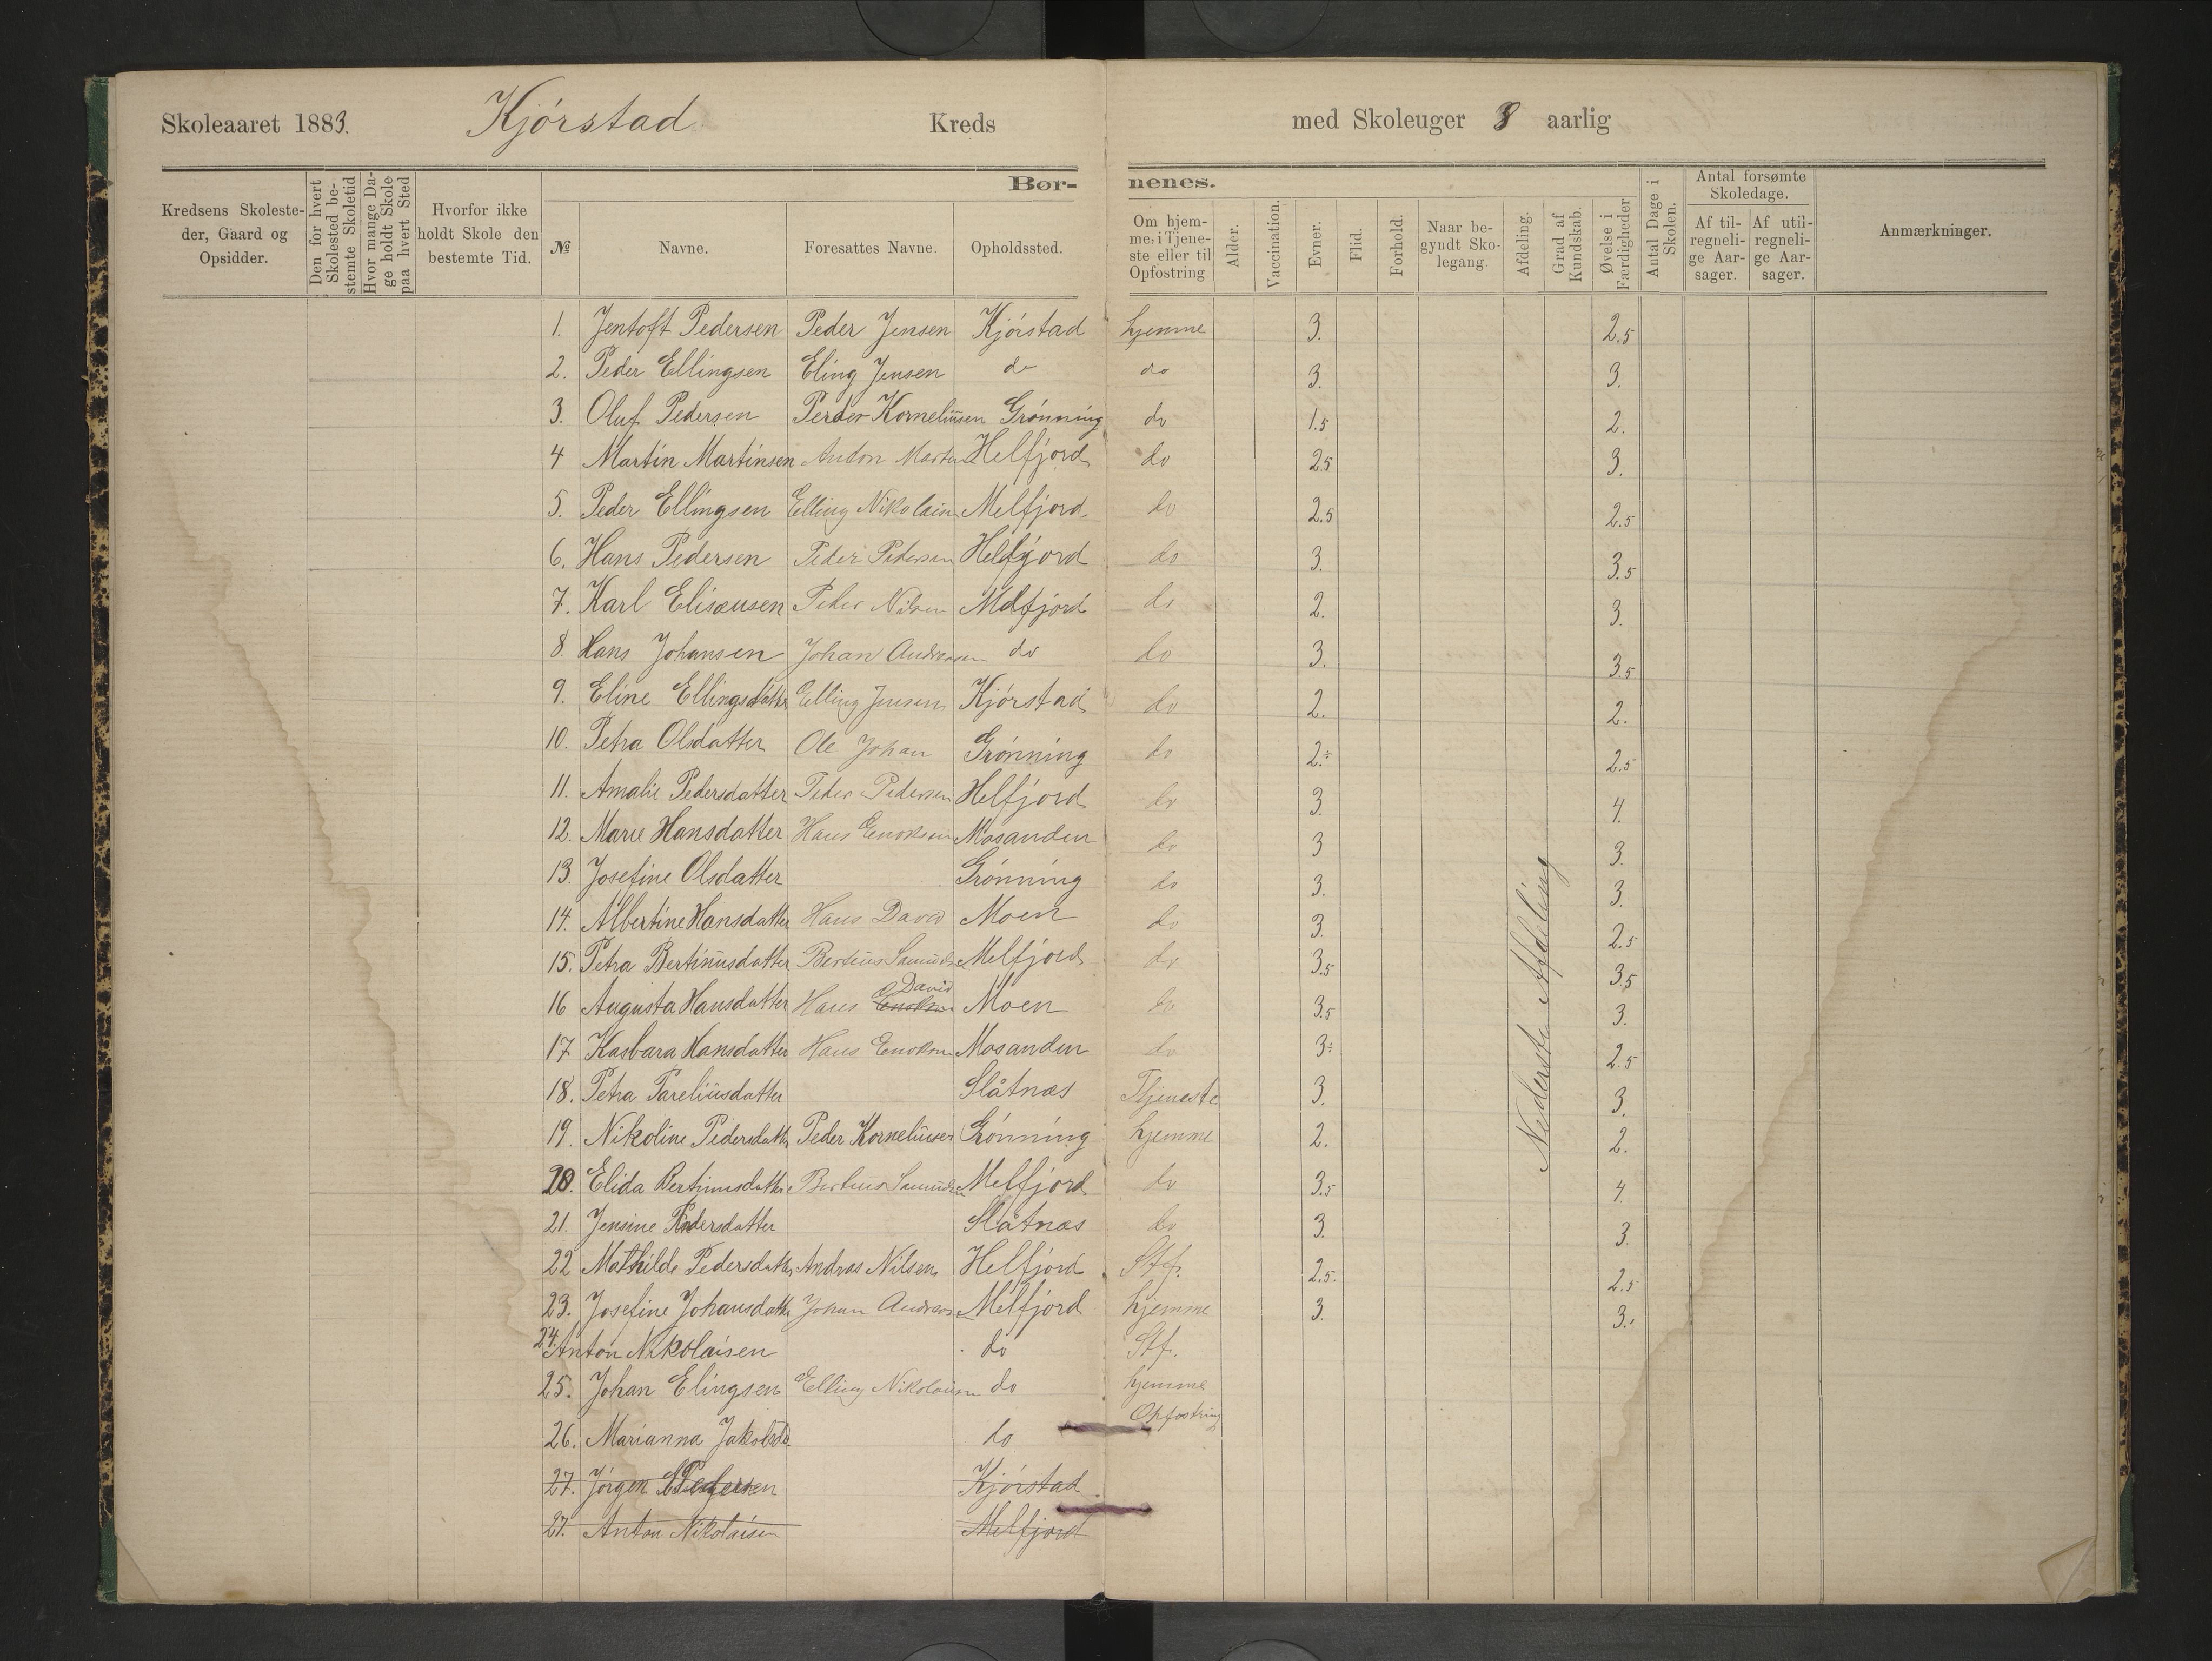 Skoleaaret 1883. Kjórstad Kreds med Skoleuger 8 aarlig
Børnenes.
Kredsens Skolesteder, Gaard og Opsidder.
Den for hvert Skolested bestemte Skoletid
Hvor mange Dage holdt Skole paa hvert Sted
Hvorfor ikke holdt Skole den bestemte Tid.
№
Navne.
Foresattes Navne.
Opholdssted.
Om hjemme, i Tjeneste eller til Opfostring
Alder.
Vaccination.
Evner.
Flid.
Forhold.
Naar begyndt Skolegang.
Afdeling.
Grad af Kundskab.
Øvelse i Færdigheder
Antal Dage i Skolen.
Antal forsømte Skoledage.
Af tilregnelige Aarsager.
Af utilregnelige Aarsager.
Anmærkninger.
1. Jentoft Pedersen Peder Jensen Kjórstad hjemme 3. 2.5
2. Peder Ellingsen Eling Jensen do do 3. 3.
3. Oluf Pedersen Perder Korneliusen Grónning do 1.5 2.
4 Martin Martinsen Helfjord do 2.5 3.
5. Peder Ellingsen Elling Nikolaisn Melfjord do 2.5 2.5
6. Hans Pedersen Peder Pedersen Helfjord do 3. 3.5
7. Karl Elisæusen Peder Nilsen Melfjord do 2. 3.
8. Hans Johansen Johan Andreasen do do 3. 3.5
9. Eline Ellingsdatter Elling Jensen Kjórstad do 2. 2.
10. Petra Olsdatter Ole Johan Grónning do 2.÷ 2.5
11. Amalie Pedersdatter Peder Pedersen Helfjord do 3. 4.
12. Marie Hansdatter Hans Enoksen Mosanden do 3 3.
13. Josefine Olsdatter Grónning do 3. 3.
14. Albertine Hansdatter Hans David Moen do 3. 2.5
15. Petra Bertinusdatter Melfjord do 3.5 3.5
16 Augusta Hansdatter Hans Enoksen David Moen do 3.5 3.
17 Kasbara Hansdatter Hans Enoksen Mosanden do 3÷ 2.5
18. Petra Pareliusdatter Slåtnæs Tjeneste 3. 3.
19. Nikoline Pedersdatter Peder Korneliusen Grónning hjemme 2. 2.
20. Elida Bertinusdatter Melfjord do 3.5 4.
21. Jensine Slåtnæs do 3. 3.
22 Mathilde Pedersdatter Andras Nilsen Helfjord Stf. 2.5. 2.5
23. Josefine Johansdatter Johan Andreasen Melfjord hjemme 3. 3.
24. Anton Nikolaisen do Stf.
25. Johan Elingsen Elling Nikolaisen do hjemme
26. Marianna Jakobsdr do Opfostring
27. Jórgen Kjórstad
27. Anton Nikolaisen Melfjord
Nederste Afdeling